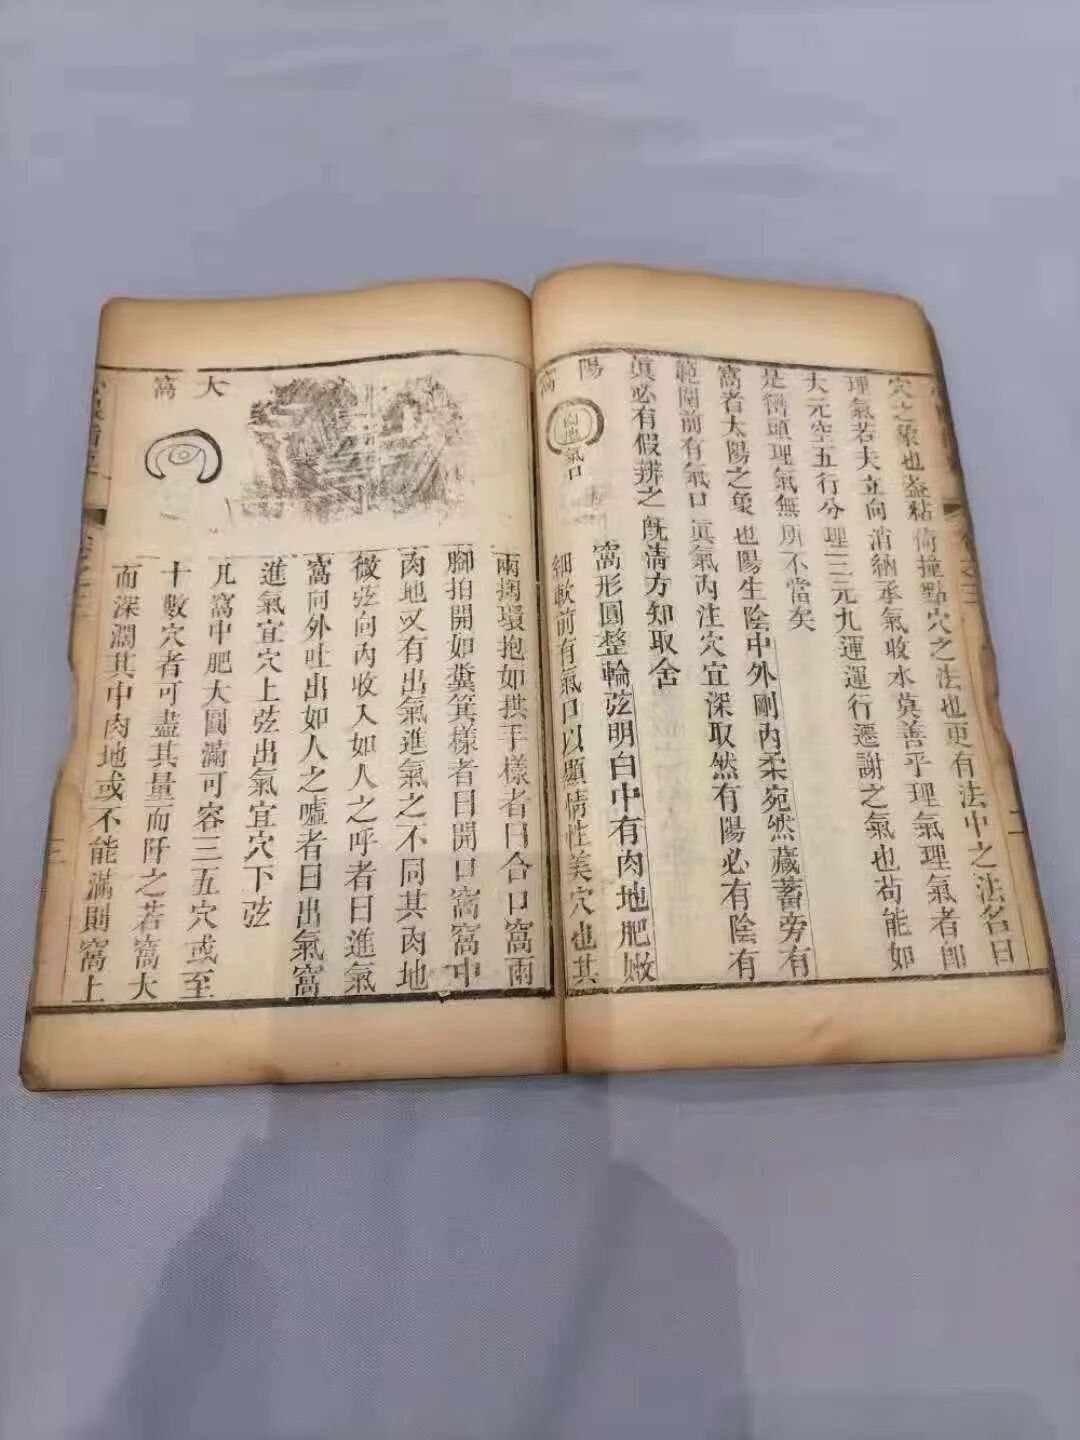 穴之象也盖粘倚撞點穴之法也更有法中之法名曰
理氣若夫立向消納承氣收水莫善乎理氣理氣者卽
大元空五行分理三元九運運行遷謝之氣也苟能如
是巒頭理氣無所不當矣
窩者太陽之象也陽生陰中外剛內柔宛然藏蓄旁有
範圍前有氣口眞氣內注穴宜深取然有陽必有陰有
眞必有假辨之旣淸方知取舍
陽窩
肉地
氣口
窩形圓整輪弦明白中有肉地肥嫩
細軟前有氣口以顯情性美穴也其
二
兩掬環抱如拱手樣者曰合口窩兩
脚拍開如糞箕樣者曰開口窩窩中
肉地又有出氣進氣之不同其肉地
微弦向內收入如人之呼者曰進氣
窩向外吐出如人之噓者曰出氣窩
進氣宜穴上弦出氣宜穴下弦
大窩
凡窩中肥大圓滿可容三五穴或至
十數穴者可盡其量而阡之若窩大
而深濶其中肉地或不能滿則窩上
三